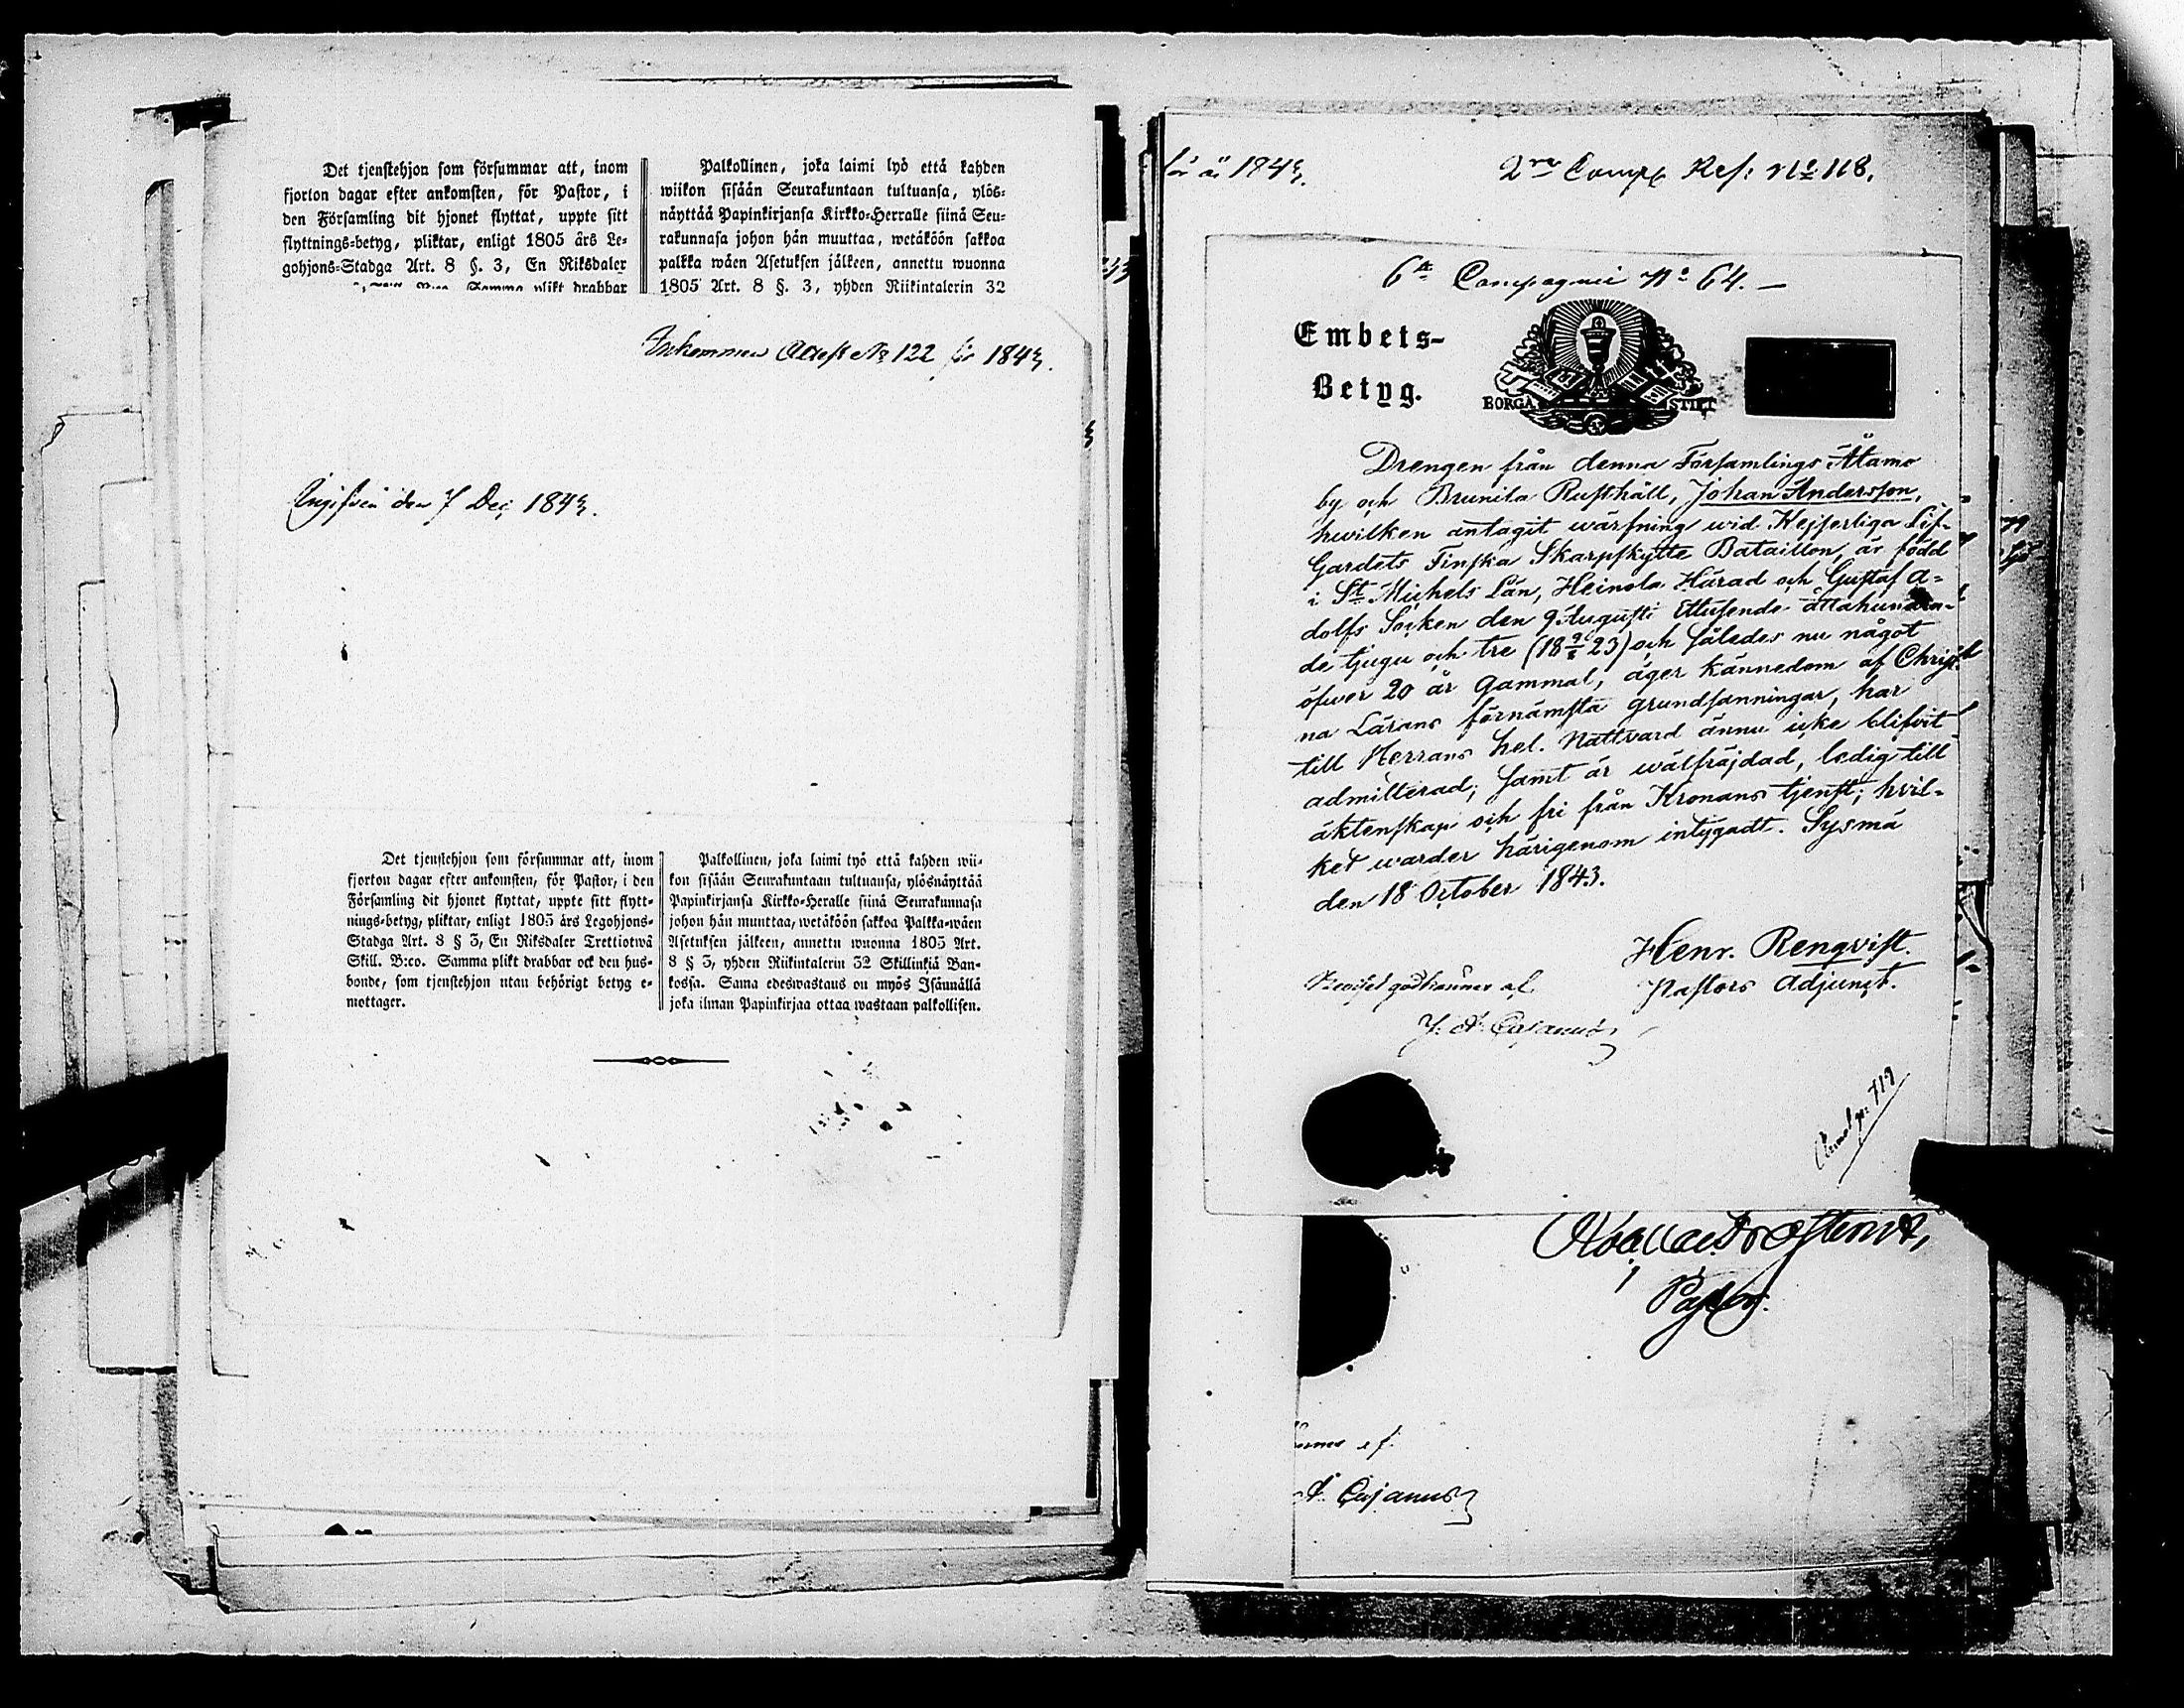 Det tjenstehjon som försummar att, inom
fjorton dagar efter ankomsten, för Pastor, i
den Församling dit hjonet flyttat, uppte sitt
flyttnings-betyg, pliktar, enligt 1805 års Le-
gohjons-Stadga Art. 8 §. 3, En Riksdaler
Samma plikt drabbar
Palkollinen, joka laimi lyö että kahden
wiikon sisään Seurakuntaan tultuansa, ylös-
näyttää Papinkirjansa Kirkko-Herralle siinä Seu-
rakunnasa johon hän muuttaa, wetäköön sakkoa
palkka wäen Asetuksen jälkeen, annettu wuonna
1805 Art. 8 §. 3, yhden Riikintalerin 32
Inkommen Attest No 122 för 1843.
Ingifven den 7 Dec 1843.
Det tjenstehjon som försummar att, inom
fjorton dagar efter ankomsten, för Pastor, i den
Församling dit hjonet flyttat, uppte sitt flytt-
nings-betyg, pliktar, enligt 1805 års Legohjons-
Stadga Art. 8 § 3, En Riksdaler Trettiotwå
Skill. B:co. Samma plikt drabbar ock den hus-
bonde, som tjenstehjon utan behörigt betyg e-
mottager.
Palkollinen, joka laimi lyö että kahden wii-
kon sisään Seurakuntaan tultuansa, ylösnäyttää
Papinkirjansa Kirkko-Heralle siinä Seurakunnasa
johon hän muuttaa, wetäköön sakkoa Palkka-wäen
Asetuksen jälkeen, annettu wuonna 1805 Art.
8 § 3, yhden Riikintalerin 32 Skillinkiä Ban-
kossa. Sama edeswastaus on myös Isännällä
joka ilman Papinkirjaa ottaa wastaan palkollisen.
för år 1843.
2ra Comp Ref: No 118.
6te Compagnie No 64. —
Embets-
Betyg.
BORGÅ STIFT
Drengen från denna Församlings Åtamo
by och Brunila Rusthåll, Johan Andersson,
hwilken antagit wärfning wid Kejserliga Lif-
Gardets Finska Skarpskytte Bataillon, är född
i St Michels Län, Heinola Härad och Gustaf A-
dolfs Socken den 9 Augusti Ettusende åttahundra-
de tjugu och tre (18 9/8 23) och således nu något
öfwer 20 år gammal; äger kännedom af Christ-
na Lärans förnämsta grundsanningar, har
till Herrans hel. Nattvard ännu icke blifvit
admitterad; samt är wälfräjdad, ledig till
äktenskap och fri från Kronans tjenst; hvil-
ket warder härigenom intygadt. Sysmä
den 18 October 1843.
Henr. Renqvist.
Pastors Adjunct.
Beviset godkännes af
J. A. Cajanus
719
Pastor.
A. Cajanus